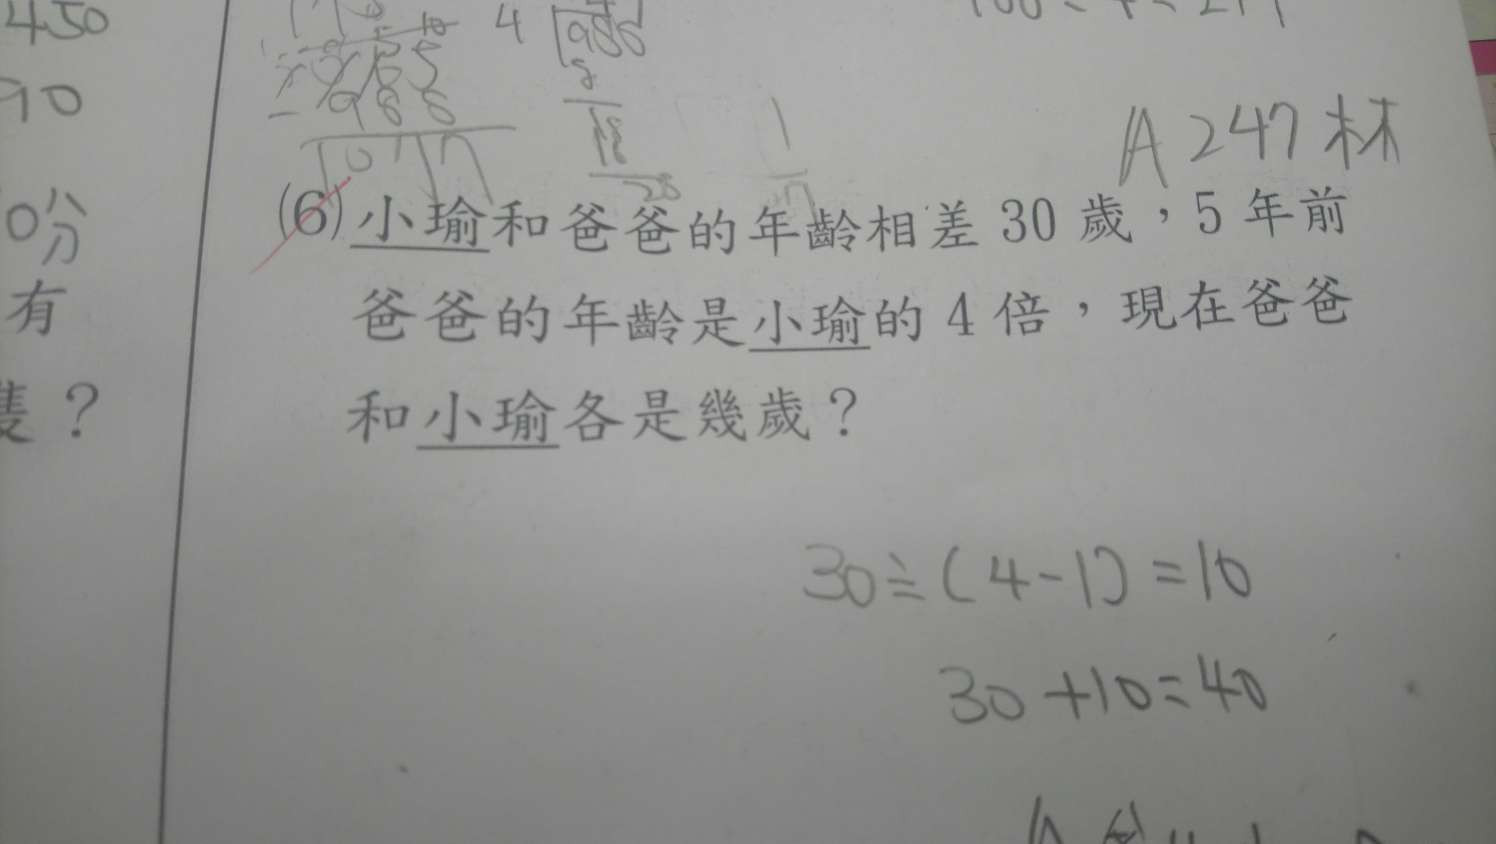 450
90
0分
有
隻？
4 986
8
18
28
- 988
A 247 林
(6)小瑜和爸爸的年齡相差 30 歲，5 年前
爸爸的年齡是小瑜的 4 倍，現在爸爸
和小瑜各是幾歲？
30÷(4-1)=10
30+10=40